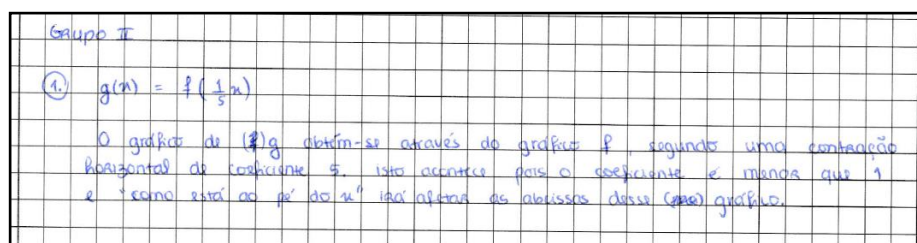 Grupo II
1. g(x) = f(1/5 x)
O gráfico de g obtém-se através do gráfico f, segundo uma contração
horizontal de coeficiente 5. Isto acontece pois o coeficiente é menor que 1
e "como está ao pé do x" irá afetar as abcissas desse gráfico.